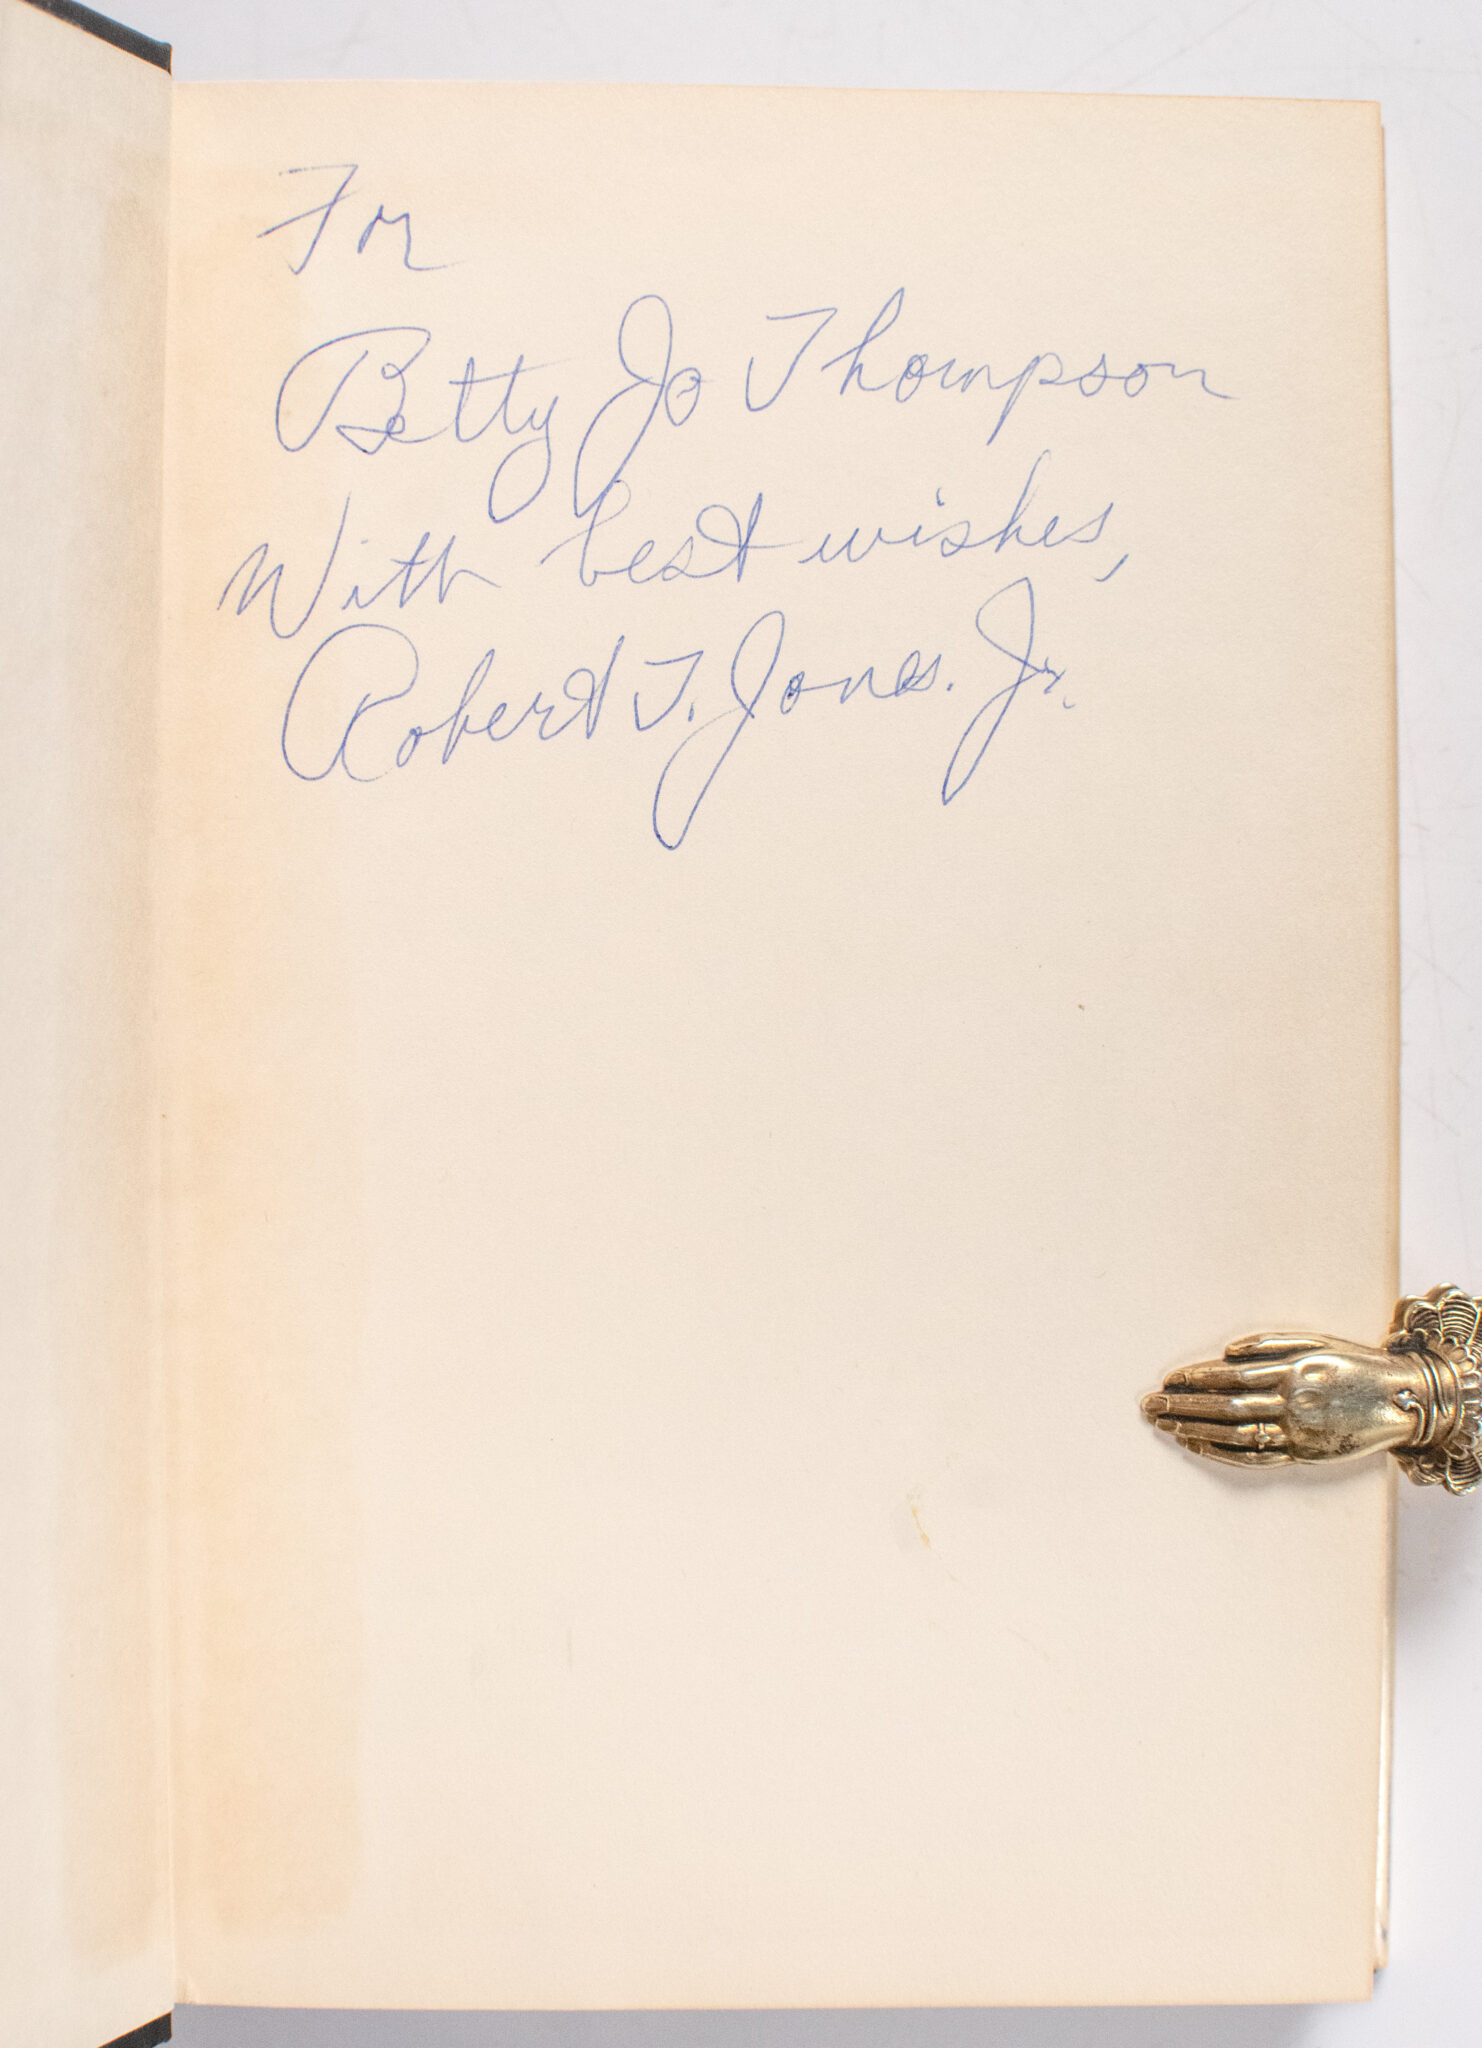 For
Betty Jo Thompson
With best wishes,
Robert T. Jones. Jr.